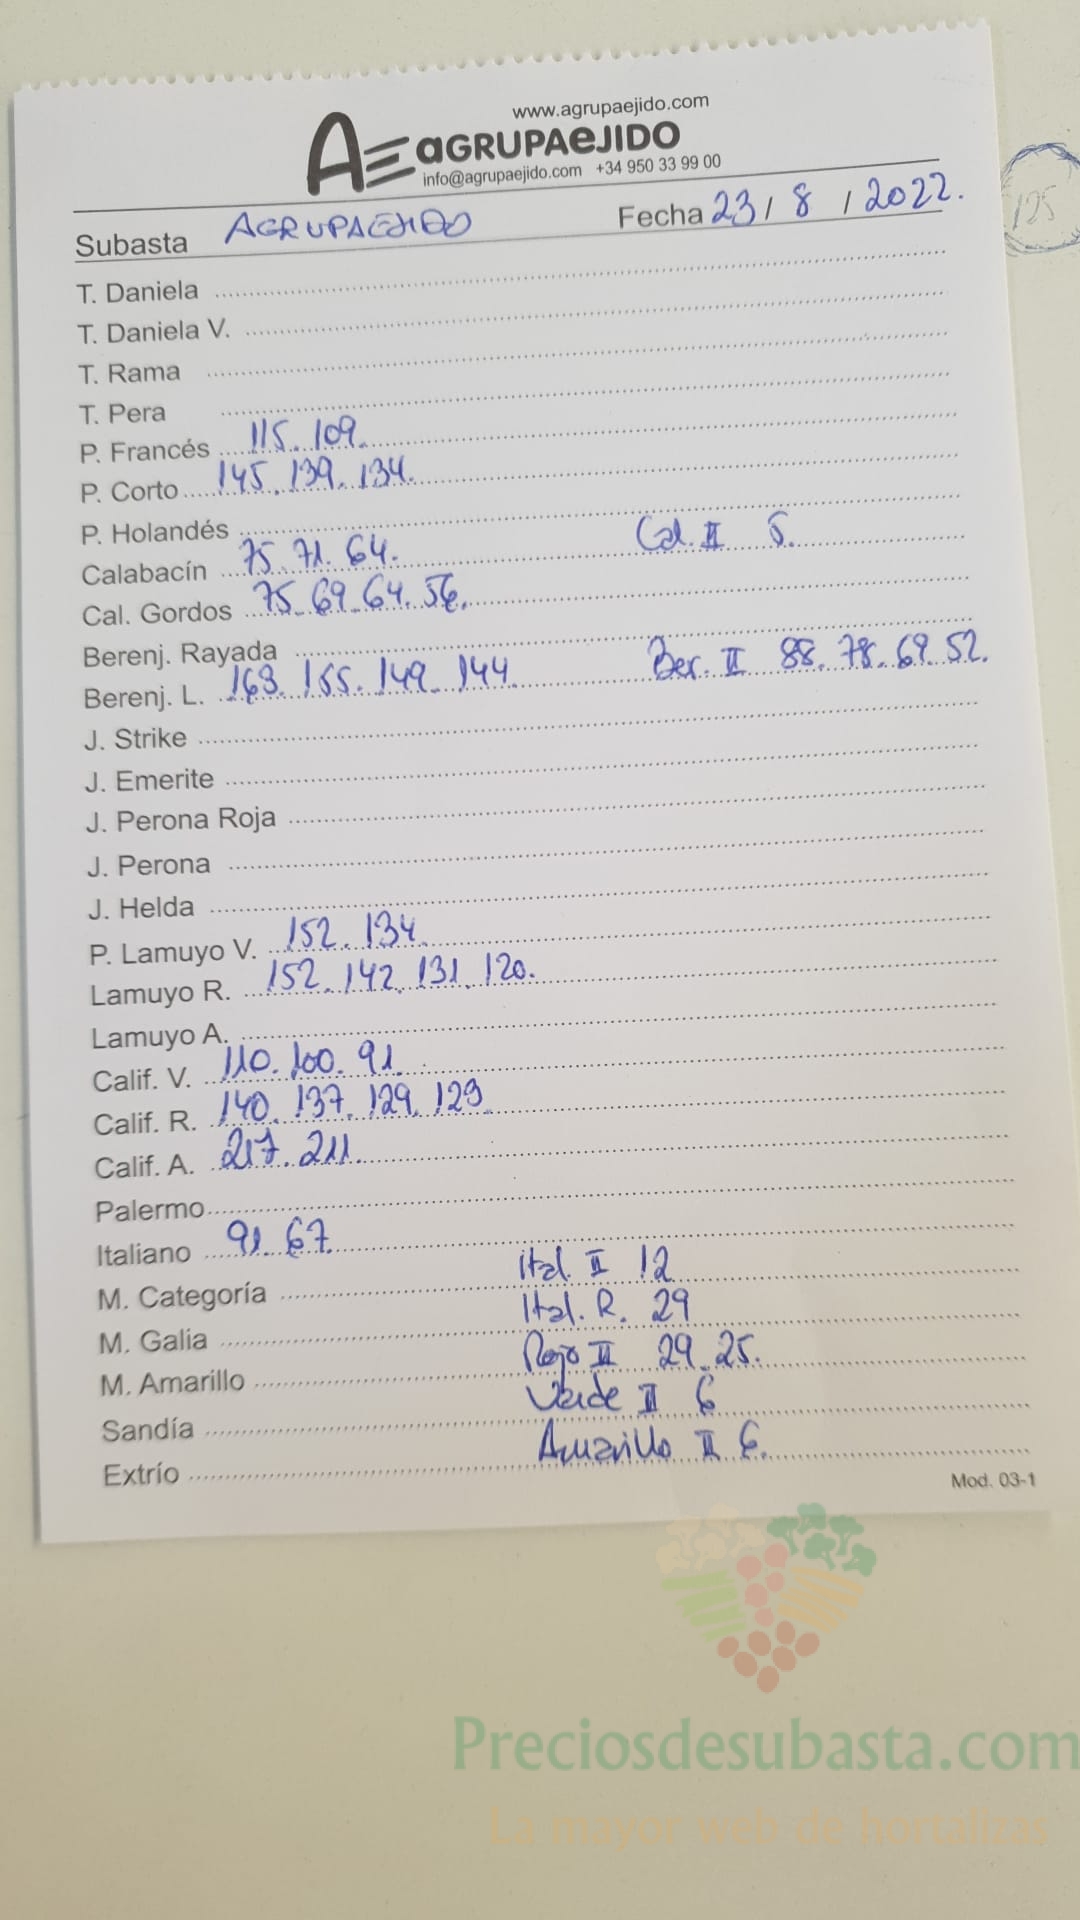 www.agrupaejido.com
AGRUPAEJIDO
info@agrupaejido.com +34 950 33 99 00
Subasta AGRUPAEJIDO Fecha 23 / 8 / 2022.
125
T. Daniela
T. Daniela V.
T. Rama
T. Pera
P. Francés 115. 109.
P. Corto 145. 139. 134.
P. Holandés
Calabacín 75. 71. 64. Cal. II 5.
Cal. Gordos 75. 69. 64. 56.
Berenj. Rayada
Berenj. L. 163. 155. 149. 144. Ber. II 88. 78. 69. 52.
J. Strike
J. Emerite
J. Perona Roja
J. Perona
J. Helda
P. Lamuyo V. 152. 134.
Lamuyo R. 152. 142. 131. 120.
Lamuyo A.
Calif. V. 110. 100. 91.
Calif. R. 140. 137. 129. 123.
Calif. A. 217. 211.
Palermo
Italiano 91. 67.
M. Categoría Ital. II 12
M. Galia Ital. R. 29
M. Amarillo Rojo II 29. 25.
Sandía Verde II 6
Extrío Amarillo II 6.
Mod. 03-1
Preciosdesubasta.com
La mayor web de hortalizas